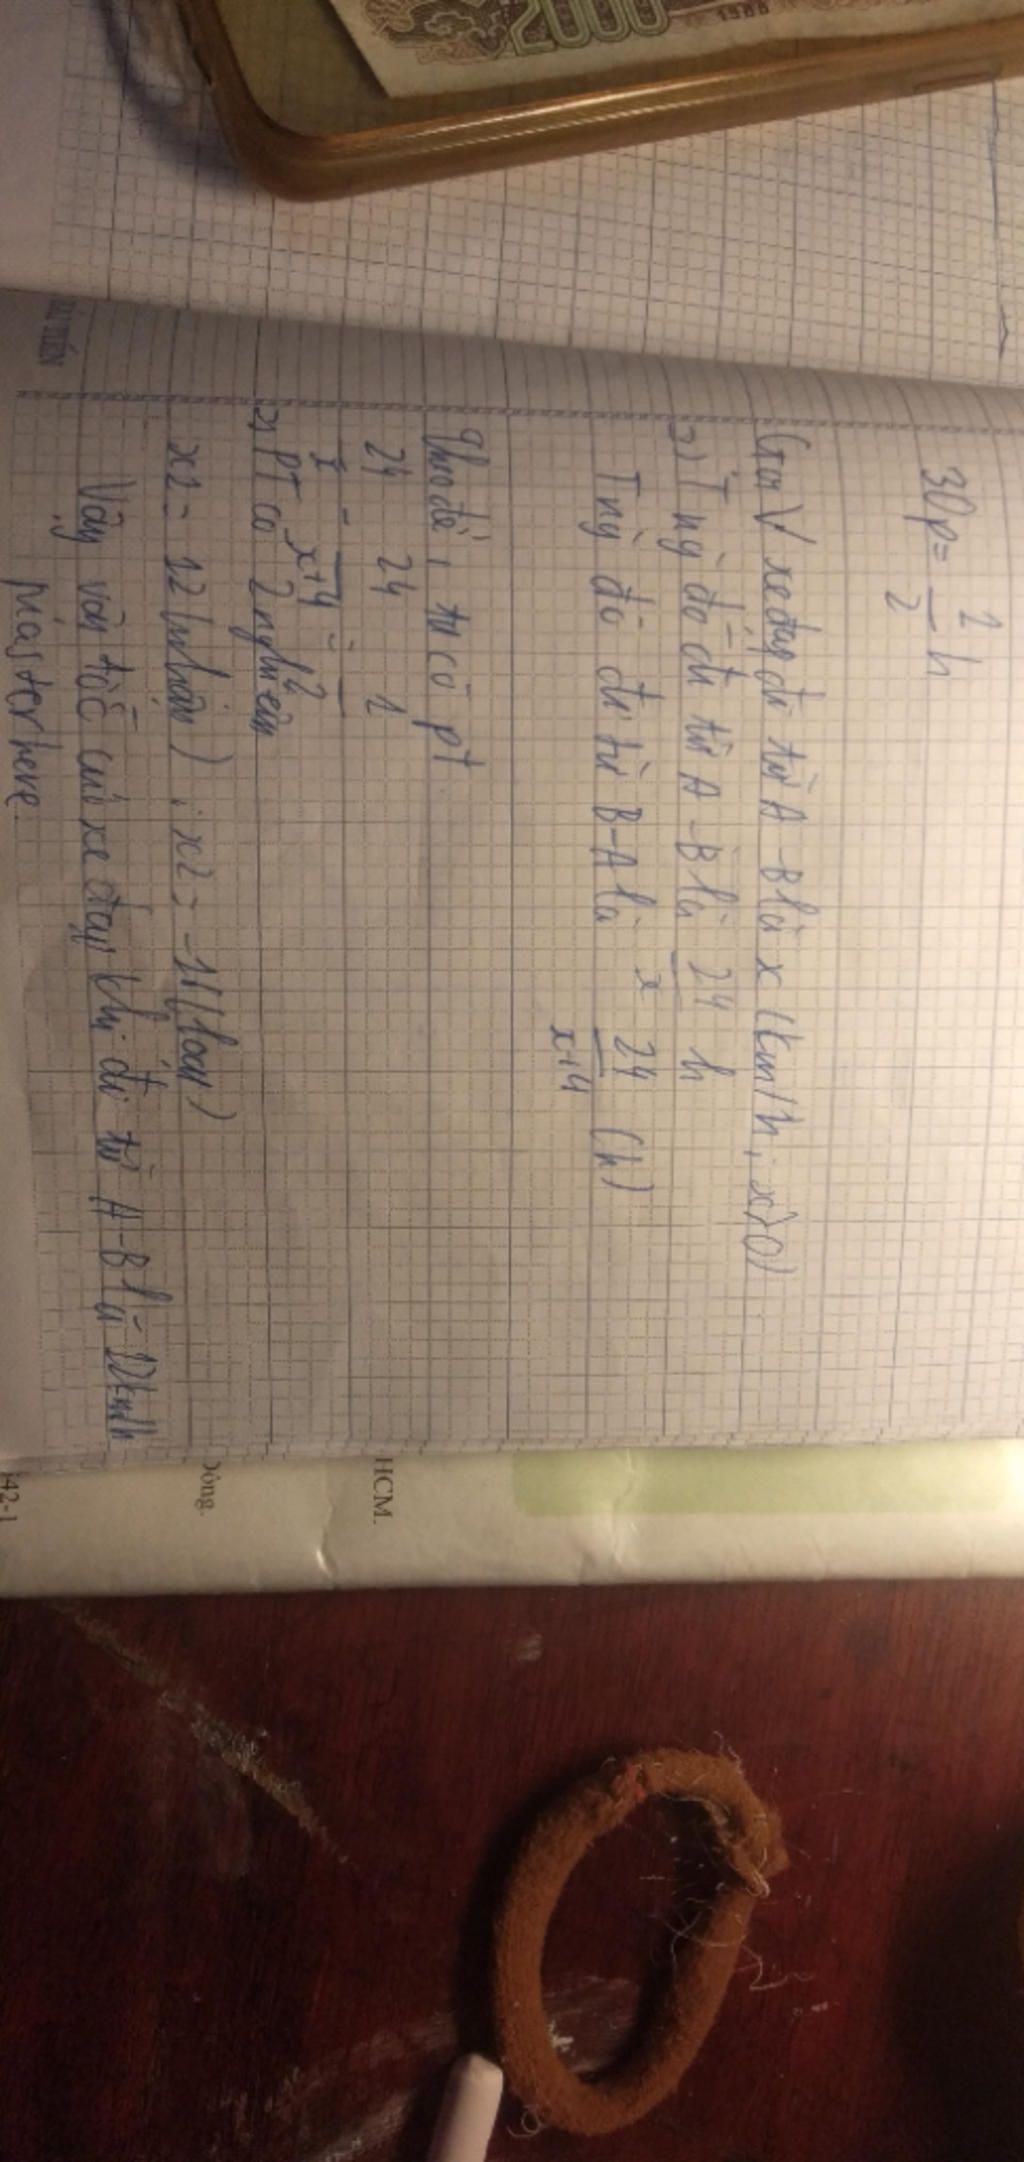 2000
1988
30p = 1/2 h
Gọi V xe đạp đi từ A-B là x (km/h, x>0)
=> T ng đó đi từ A-B là 24/x h
T ng đó đi từ B-A là 24/x+4 (h)
Theo đề, ta có pt
24/x - 24/x+4 = 1/2
=> PT có 2 nghiệm
x1 = 12 (nhận) ; x2 = -16 (loại)
Vậy vận tốc của xe đạp khi đi từ A-B là 12km/h
Masterhere
HCM.
Đông.
42-1